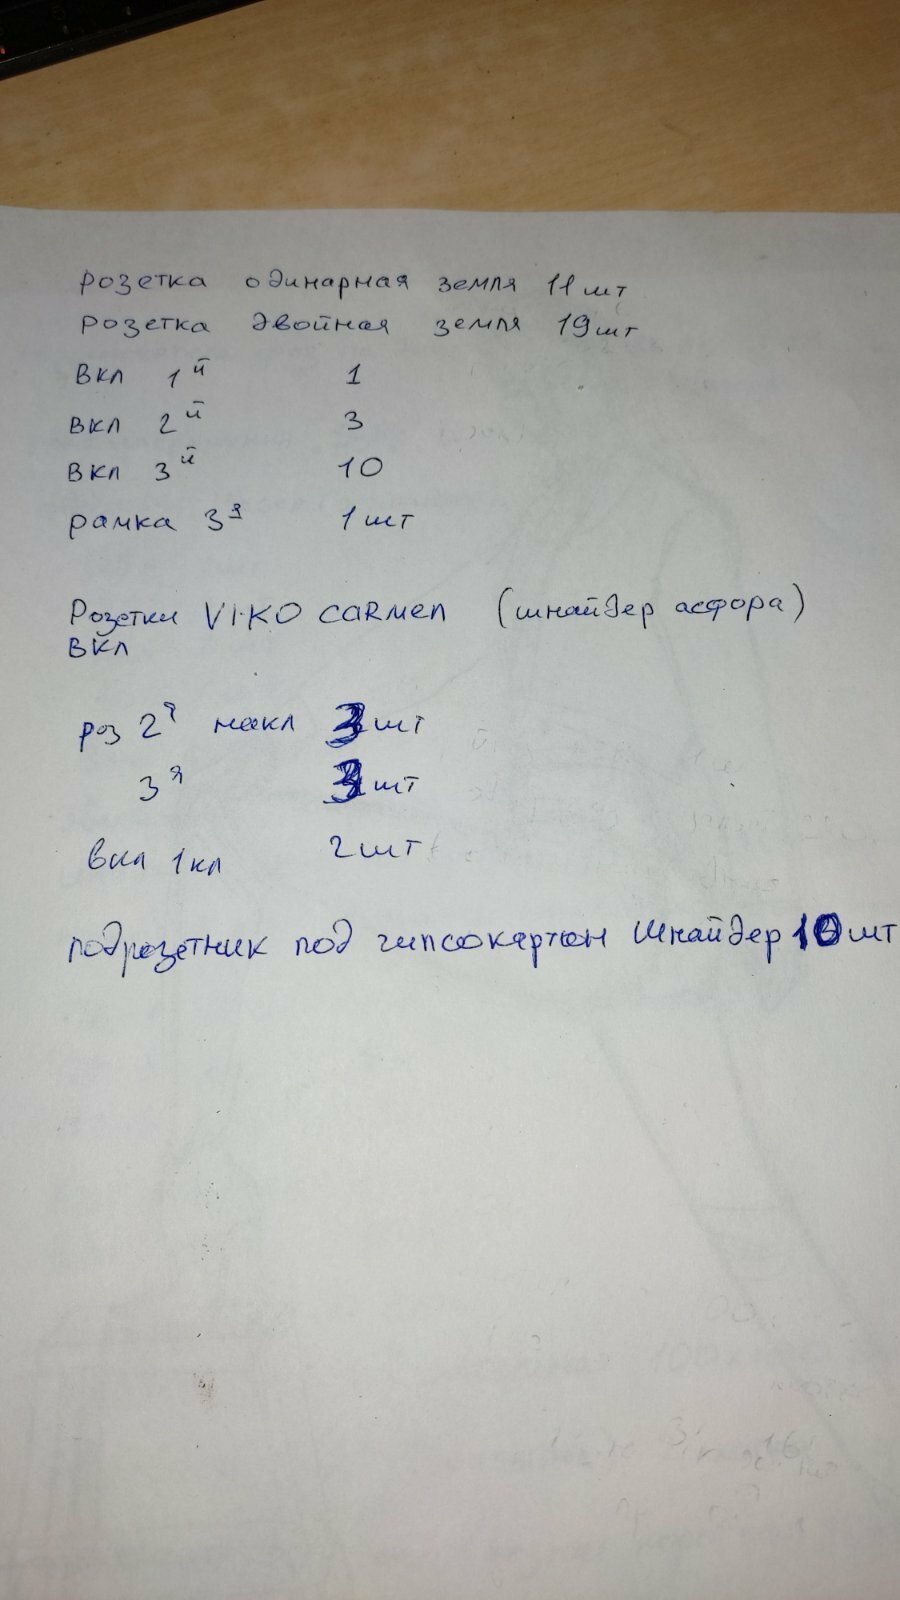 розетка одинарная земля 11 шт
розетка двойная земля 19 шт
Вкл 1й 1
вкл 2й 3
вкл 3й 10
рамка 3я 1 шт
Розетки VI·KO CARMEN (шнайдер асфора)
вкл
роз 2я накл 3 шт
3я 3 шт
вкл 1 кл 2 шт
подрозетник под гипсокартон Шнайдер 10 шт